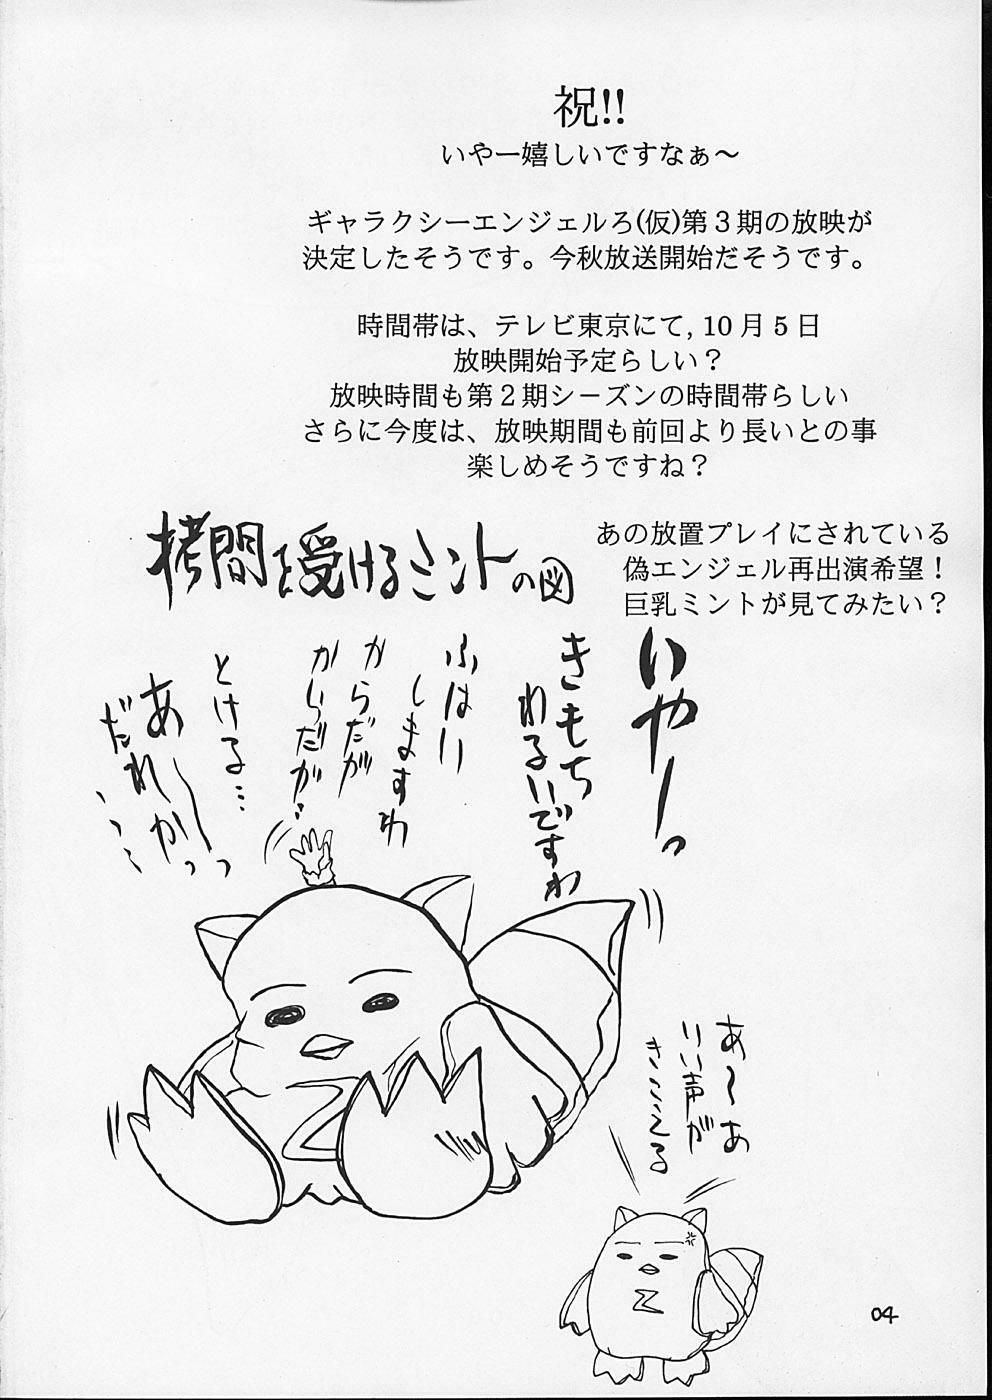 祝!!
いやー嬉しいですなぁ～
ギャラクシーエンジェルろ(仮)第３期の放映が
決定したそうです。今秋放送開始だそうです。
時間帯は、テレビ東京にて,10月５日
放映開始予定らしい？
放映時間も第２期シーズンの時間帯らしい
さらに今度は、放映期間も前回より長いとの事
楽しめそうですね？
あの放置プレイにされている
偽エンジェル再出演希望！
巨乳ミントが見てみたい？
拷問を受けるミントの図
いやーっ
きもち
わるいですわ
ふはり
しますわ
からだが
からだが…
とける…
あ～～っ
だれかっ
、、、
あ～あ
いい声が
きこえる
Z
Z
04